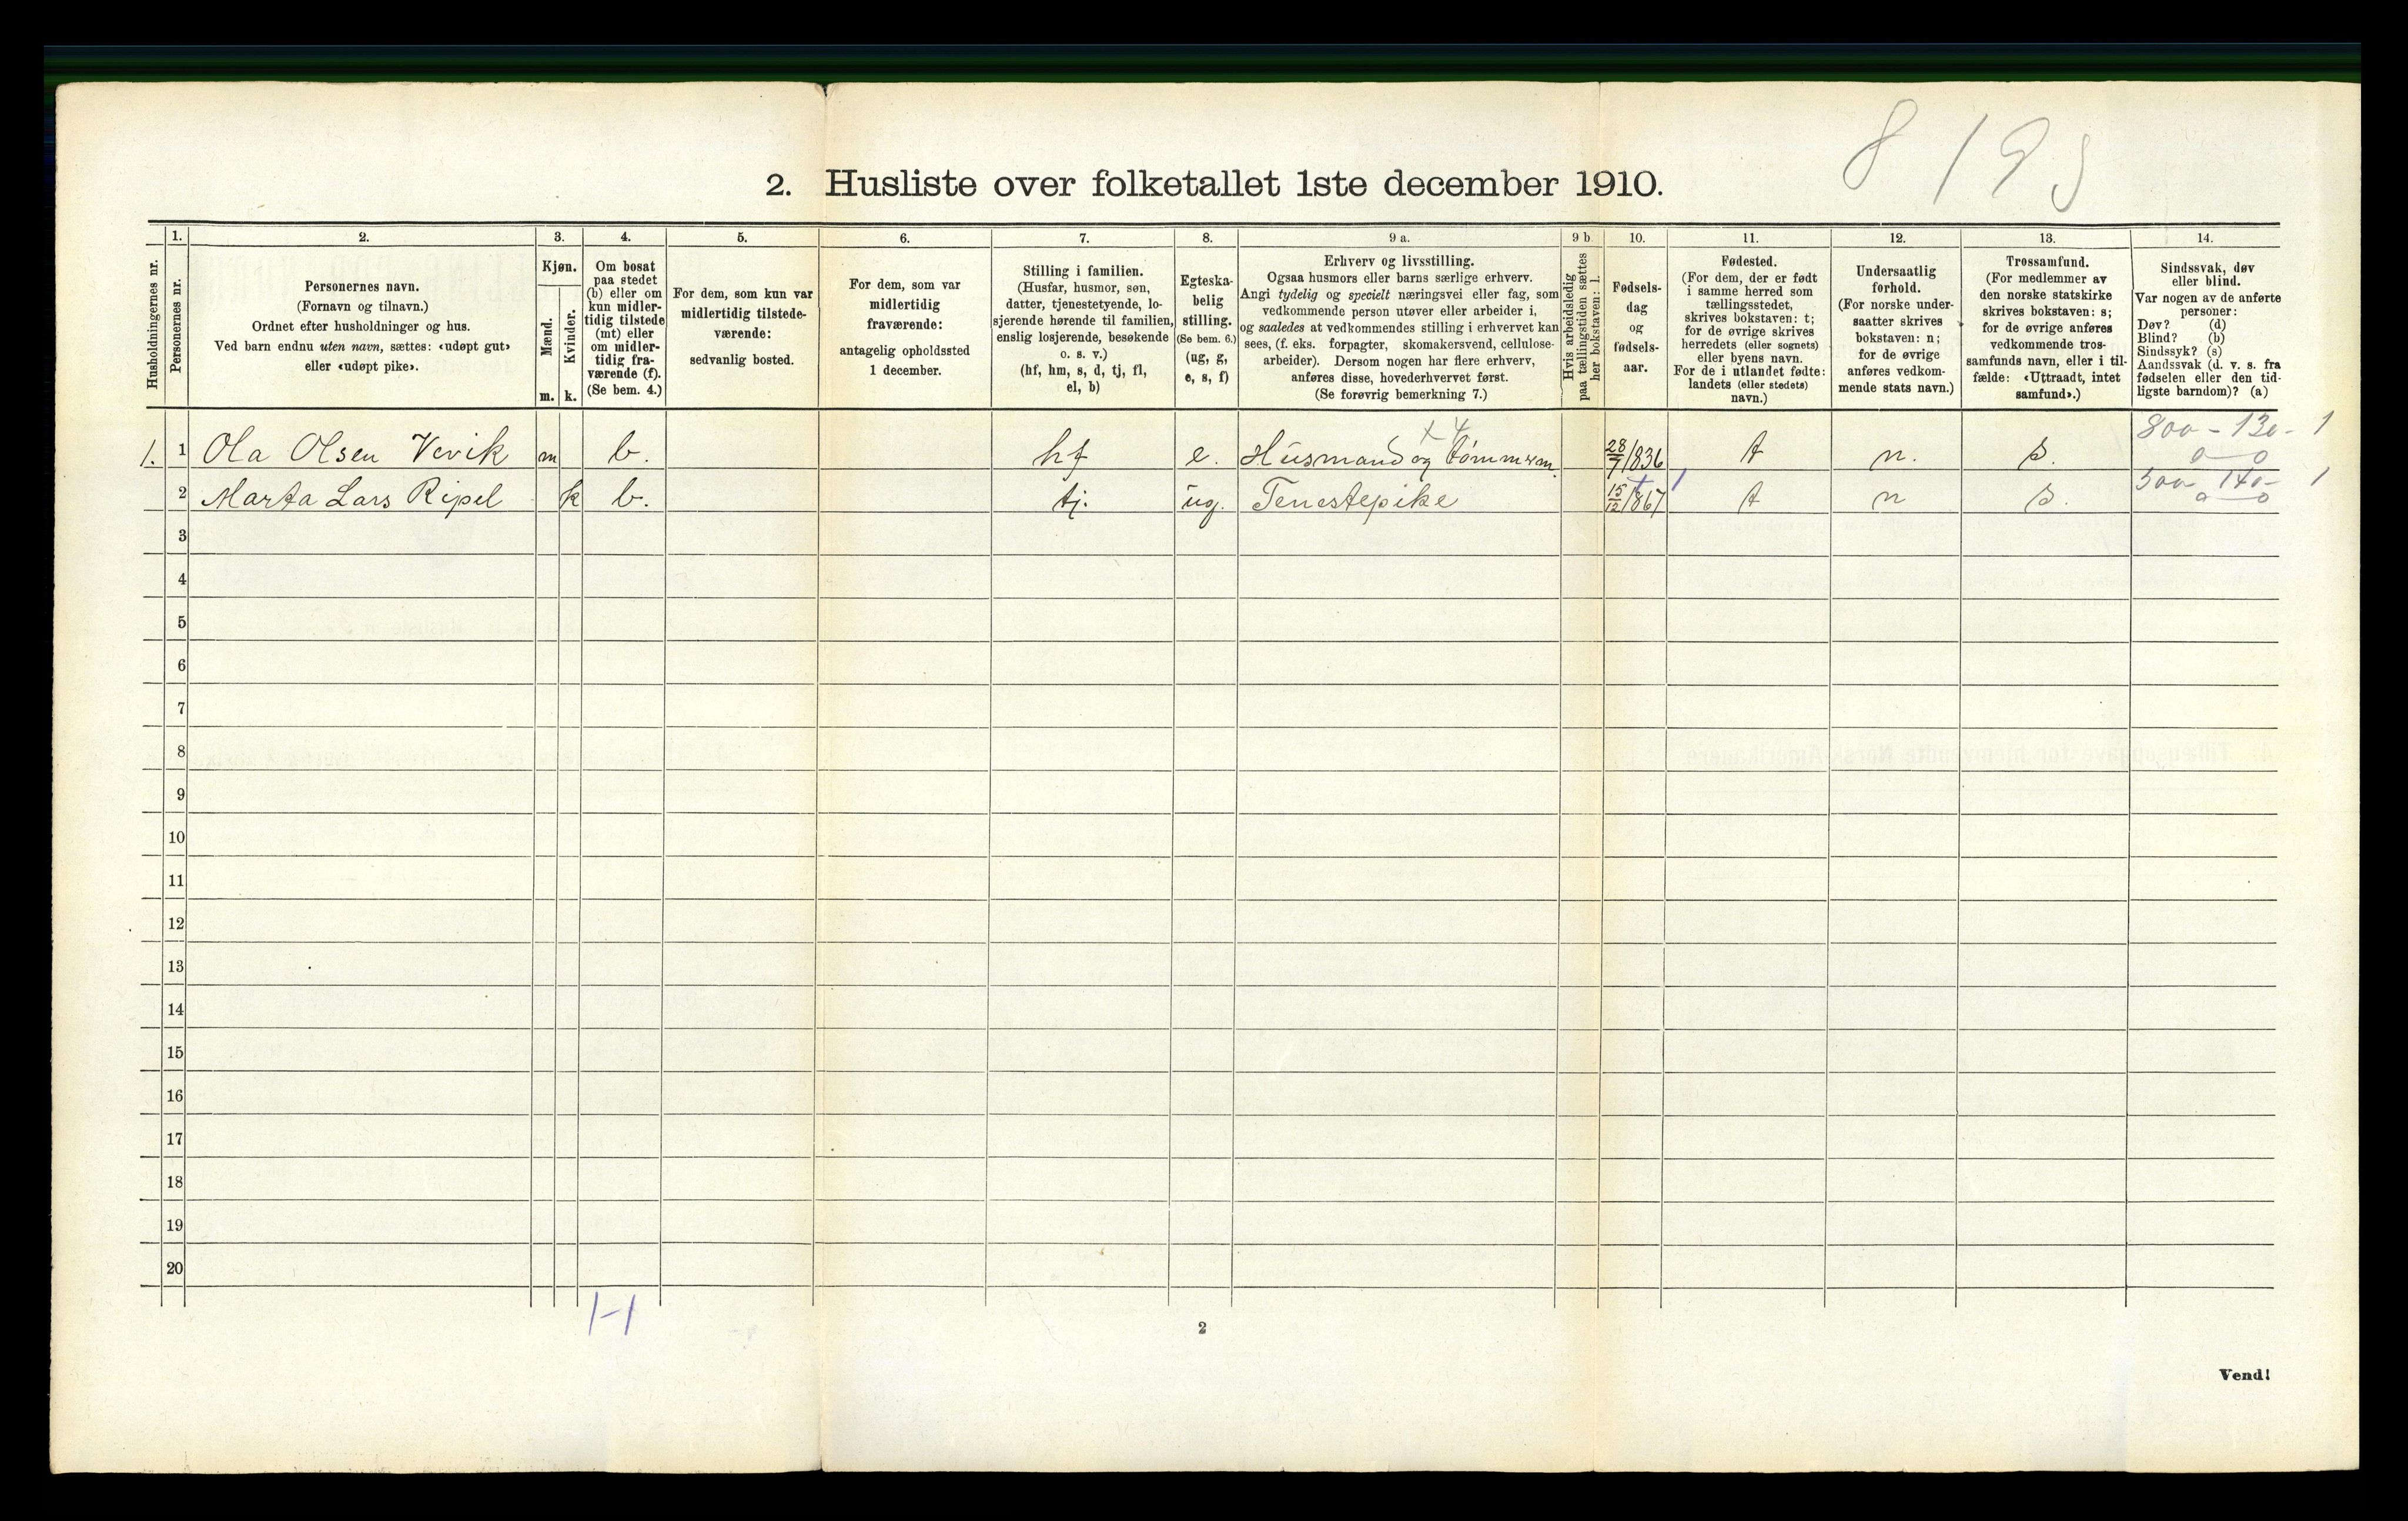 8 199
2. Husliste over folketallet 1ste december 1910.
Husholdningernes nr.
1.
Personernes nr.
2.
Personernes navn.
(Fornavn og tilnavn.)
Ordnet efter husholdninger og hus.
Ved barn endnu uten navn, sættes: «udøpt gut»
eller «udøpt pike».
3.
Kjøn.
Mænd.
Kvinder.
m. k.
4.
Om bosat
paa stedet
(b) eller om
kun midler-
tidig tilstede
(mt) eller
om midler-
tidig fra-
værende (f).
(Se bem. 4.)
5.
For dem, som kun var
midlertidig tilstede-
værende:
sedvanlig bosted.
6.
For dem, som var
midlertidig
fraværende:
antagelig opholdssted
1 december.
7.
Stilling i familien.
(Husfar, husmor, søn,
datter, tjenestetyende, lo-
sjerende hørende til familien,
enslig losjerende, besøkende
o. s. v.)
(hf, hm, s, d, tj, fl,
el, b)
8.
Egteska-
belig
stilling.
(Se bem. 6.)
(ug, g,
e, s, f)
9 a.
Erhverv og livsstilling.
Ogsaa husmors eller barns særlige erhverv.
Angi tydelig og specielt næringsvei eller fag, som
vedkommende person utøver eller arbeider i,
og saaledes at vedkommendes stilling i erhvervet kan
sees, (f. eks. forpagter, skomakersvend, cellulose-
arbeider). Dersom nogen har flere erhverv,
anføres disse, hovederhvervet først.
(Se forøvrig bemerkning 7.)
9 b
Hvis arbeidsledig
paa tællingstiden sættes
her bokstaven: l.
10.
Fødsels-
dag
og
fødsels-
aar.
11.
Fødested.
(For dem, der er født
i samme herred som
tællingsstedet,
skrives bokstaven: t;
for de øvrige skrives
herredets (eller sognets)
eller byens navn.
For de i utlandet fødte:
landets (eller stedets)
navn.)
12.
Undersaatlig
forhold.
(For norske under-
saatter skrives
bokstaven: n;
for de øvrige
anføres vedkom-
mende stats navn.)
13.
Trossamfund.
(For medlemmer av
den norske statskirke
skrives bokstaven: s;
for de øvrige anføres
vedkommende tros-
samfunds navn, eller i til-
fælde: «Uttraadt, intet
samfund».)
14.
Sindssvak, døv
eller blind.
Var nogen av de anførte
personer:
Døv? (d)
Blind? (b)
Sindssyk? (s)
Aandssvak (d. v. s. fra
fødselen eller den tid-
ligste barndom)? (a)
x 4
800 - 130 - 1
1. 1 Ola Olsen Vevik m b. hf e. Husmand og tømmerm. 28/7 1836 t n. s. 0 0
500 140 - 1
2 Marta Lars Ripel k b. tj. ug. Tenestepike 15/12 1867 t n s. 0 0
3
4
5
6
7
8
9
10
11
12
13
14
15
16
17
18
19
20
1-1
2
Vend!